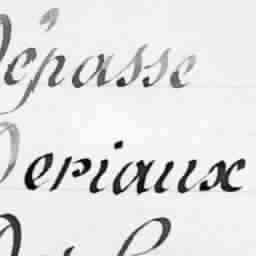 Dépasse
Deriaux